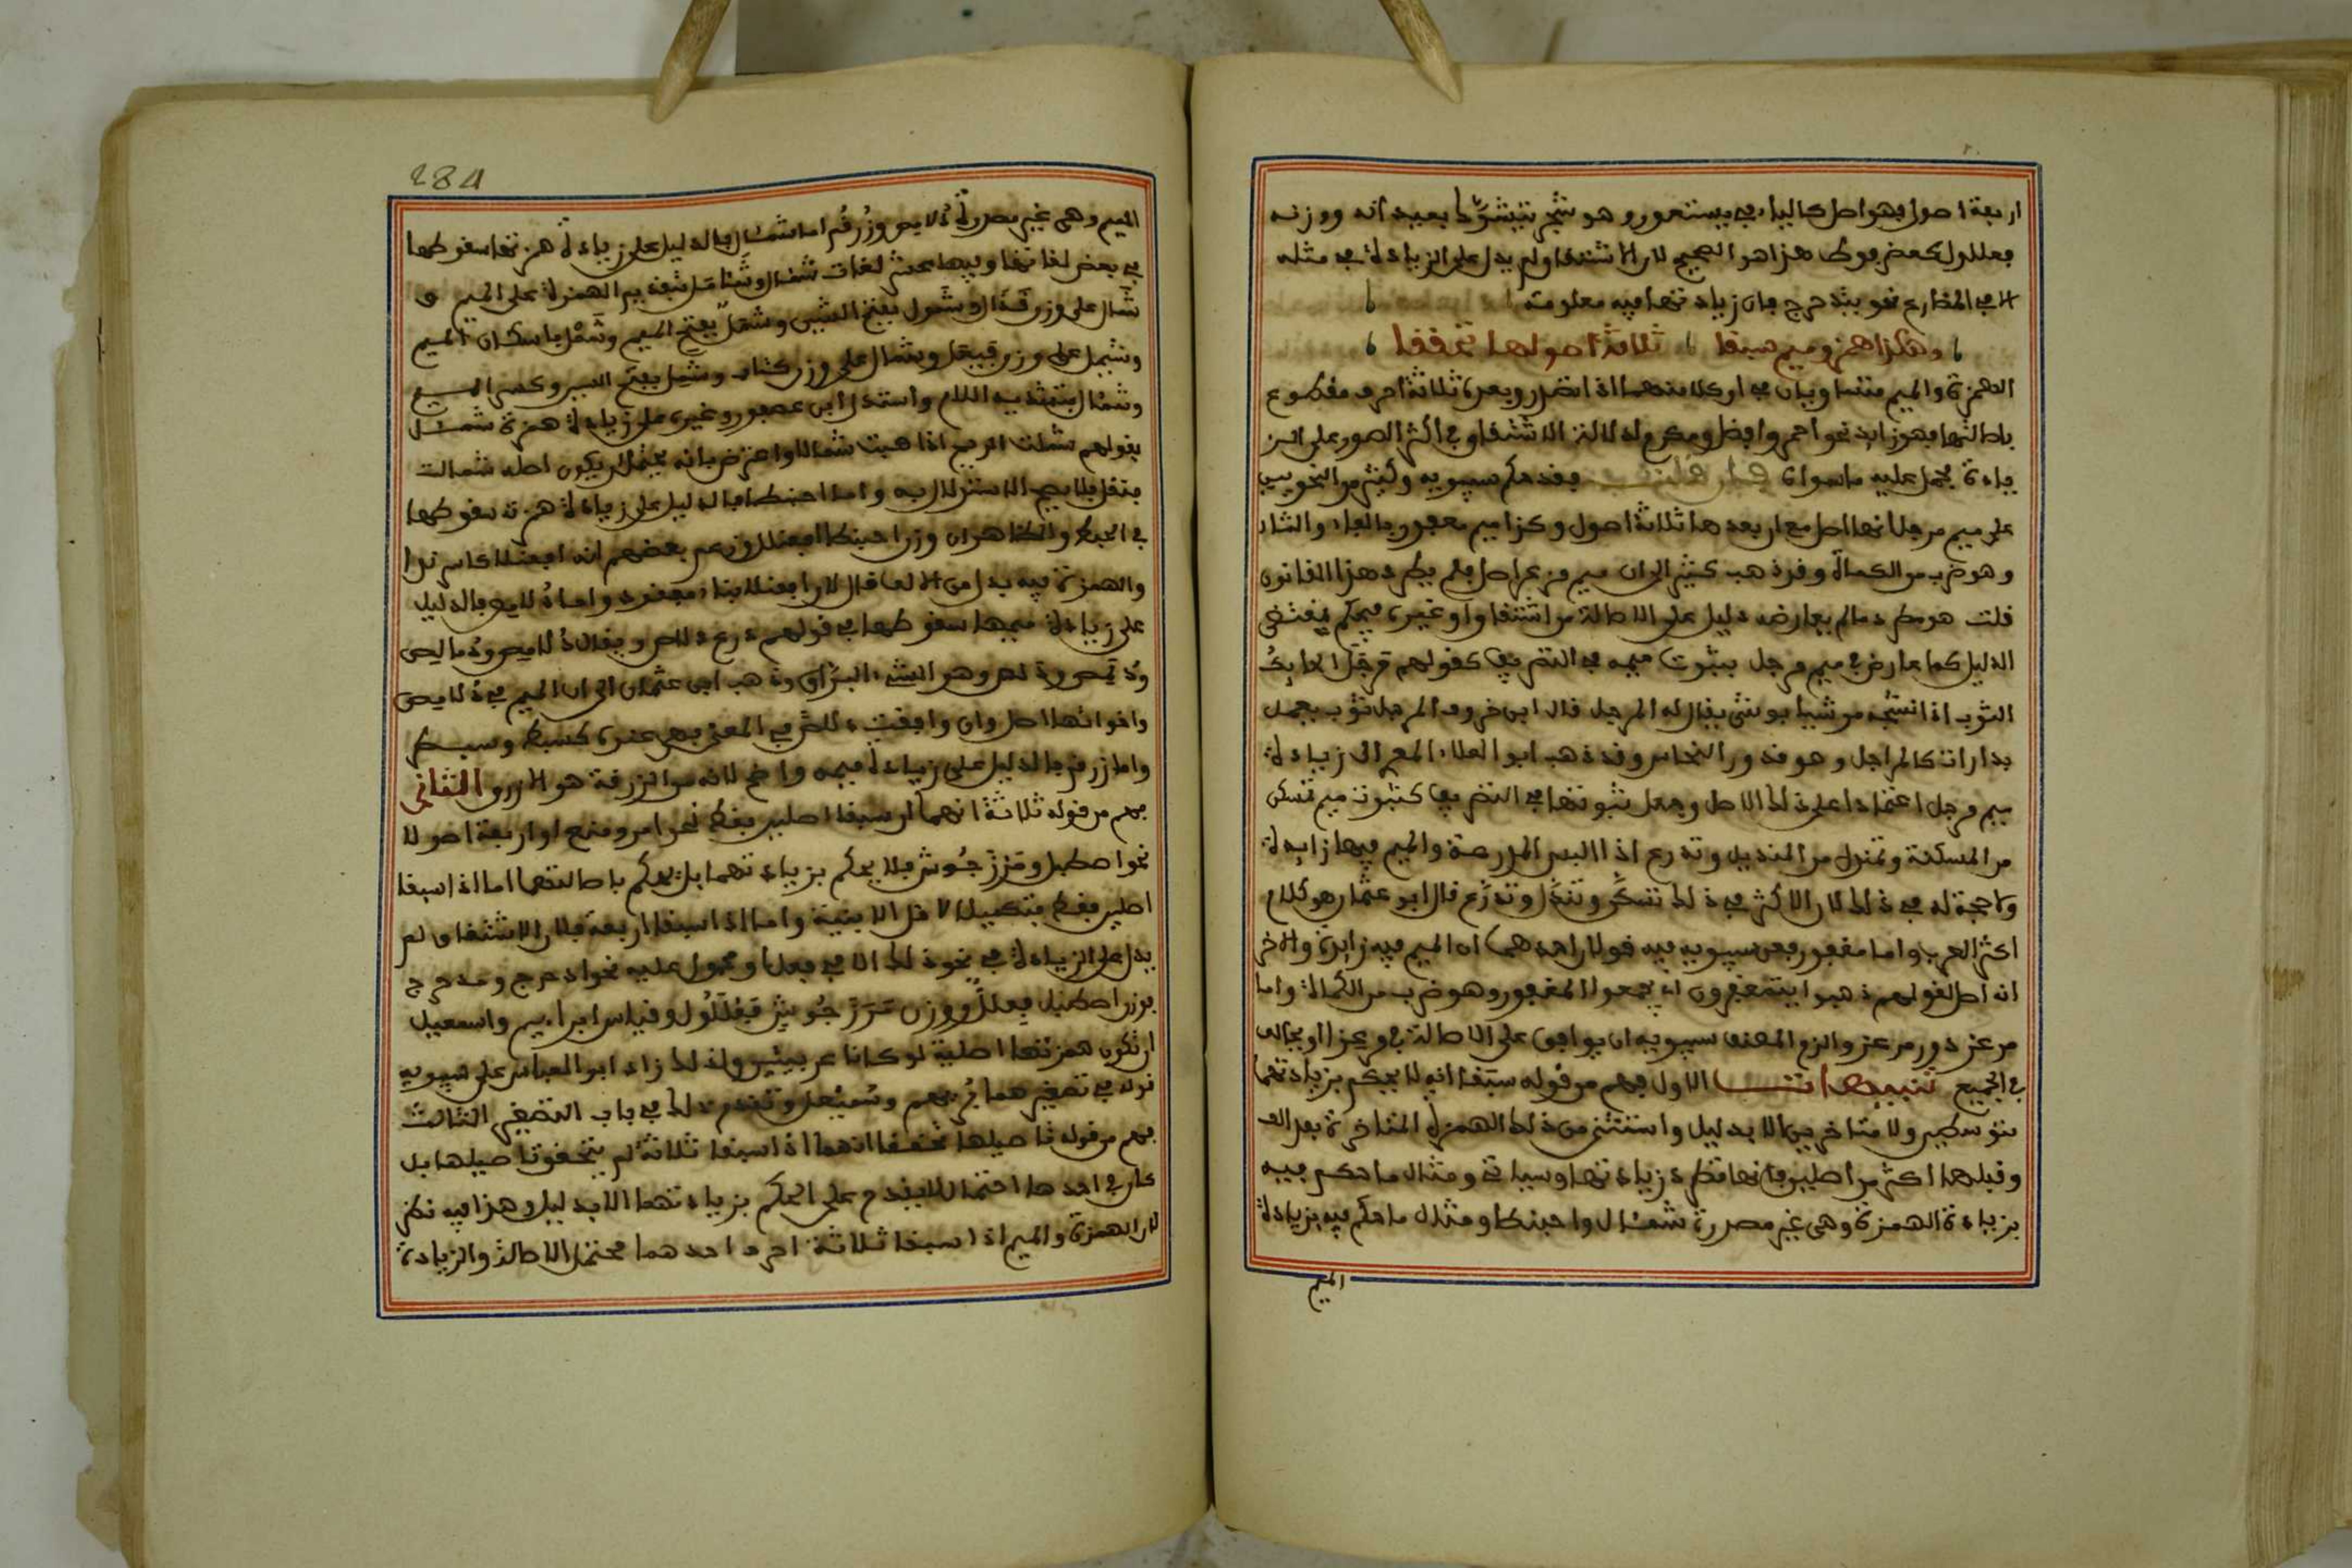 اربعة اصول فهو اصل كالياء في يستعور وهو شجر يتشوك بعيدانه ووزنه
فعللول كعضرفوط هذا هو الصحيح لان الاشتقاق لم يدل على الزيادة في مثله
الا في المضارع نحو يدحرج فان زيادتها فيه معلومة
وهكذا همز وميم سبقا ثلاثة اصولها تحققا
الهمزة والميم متساويان في ان كلا منهما اذا تصدر وبعده ثلاثة احرف مقطوع
باصالتها فهو زايد نحو احمر وافضل ومكرم لدلالة الاشتقاق في اكثر الصور على الز
يادة فحمل عليه ما سواه فقد حكم سيبويه وكثير من النحويين
على ميم مرجل انها اصل مع ان بعدها ثلاثة اصول وكذا ميم مغفور بالفاء والثاء
وهو ضرب من الكمأة وقد ذهب كثير الى ان ميم مرعز اصل فلم يطرد هذا القانون
قلت هو مطرد ما لم يعارضه دليل على الاصالة من اشتقاق او غيره فيحكم بمقتضى
الدليل كما عارض في ميم مرجل بثبوت ميمه في التصريف كقولهم مرجل الحايك
الثوب اذا نسجه موشيا بوشي يقال له المرجل قال ابن خروف المرجل ثوب يعمل
بدارات كالمراجل وهو قدور النحاس وقد ذهب ابو العلاء المعري الى زيادة
ميم مرجل اعتمادا على ذلك الاصل وجعل ثبوتها في التصريف كثبوت ميم تمسكن
من المسكنة وتمندل من المنديل وتمدرع اذا لبس المدرعة والميم فيها زايدة
ولا حجة له في ذلك لان الاكثر في ذلك تسكن وتندل وتدرع قال ابو عثمان هو كلام
اكثر العرب واما مغفور فعن سيبويه فيه قولان احدهما ان الميم فيه زايدة والاخر
انه اصل لقولهم ذهبوا يتمغفرون اي يجمعون المغفور وهو ضرب من الكمأة واما
مرعز فذهب سيبويه الى ان ميمه
في الجميع تنبيهات الاول فهم من قوله سبقا انه لا يحكم بزيادتهما
متوسطين ولا متاخرين الا بدليل واستثنى من ذلك الهمزة المتاخرة بعد الف
وقبلها اكثر من اصلين فانها تطرد زيادتها وسياتي ومثال ما حكم فيه
بزيادة الهمزة وهي غير مصدرة شمأل واحبنطا ومثال ما حكم فيه بزيادة
الميم
284
الميم وهي غير مصدرة دلامص وزرقم اما شمأل فالدليل على زيادة همزتها سقوطها
في بعض لغاتها وفيها عشر لغات شمأل وشأمل بتقديم الهمزة على الميم و
شمال على وزن قذال وشمول بفتح الشين وشمل بفتح الميم وشمل باسكان الميم
وشيمل على وزن صيقل وشمال على وزن كتاب وشميل بفتح الشين وكسر الميم
وشمأل بتشديد اللام واستدل ابن عصفور وغيره على زيادة همزة شمأل
بقولهم شملت الريح اذا هبت شمالا واعترض بانه يحتمل ان يكون اصله شمألت
فنقل فلا يصح الاستدلال به واما احبنطا فالدليل على زيادة همزته سقوطها
في الحبط والظاهر ان وزن احبنطا افعنلا وزعم بعضهم انه افعنلا كاسرندا
والهمزة فيه بدل من الالف قال لان افعنلا بناء مفقود واما دلامص فالدليل
على زيادة ميمها سقوطها في قولهم درع دلاص ويقال دلامص ودمالص
ودملص ودلمص وهو الشيء البراق وذهب ابو عثمان الى ان الميم في دلامص
واخواتها اصل وان وافقت دلاصا في المعنى فهي عنده كسبط وسبطر
واما زرقم فالدليل على زيادة ميمه واضح لانه من الزرقة هو الازرق الثاني
فهم من قوله ثلاثة انهما ان سبقا اصلين فقط نحو امر ومنع او اربعة اصولا
نحو اصطبل ومرزجوش فلا يحكم بزيادتهما بل يحكم باصالتهما اما اذا سبقا
اصلين فقط فتكميلا لاقل الابنية واما اذا سبقا اربعة فلان الاشتقاق لم
يدل على الزيادة في نحو ذلك الا في فعل او محمول عليه نحو ادحرج ومدحرج
فوزن اصطبل فعلل ووزن مرزجوش فعللول وقياس ابراهيم واسمعيل
ان تكون همزتهما اصلية لو كانا عربيين ولذلك زاد ابو العباس على سيبويه
قوله في تصغيرهما بريهم وسميعل وتقدم ذلك في باب التصغير الثالث
فهم من قوله تاصيلها تحققا انهما اذا سبقا ثلاثة لم يتحقق تاصيلها بل
كان في احدها احتمال لا يقدم على الحكم بزيادتهما الا بدليل وهذا فيه نظر
لان الهمزة والميم اذا سبقا ثلاثة احرف احدهما محتمل الاصالة والزيادة